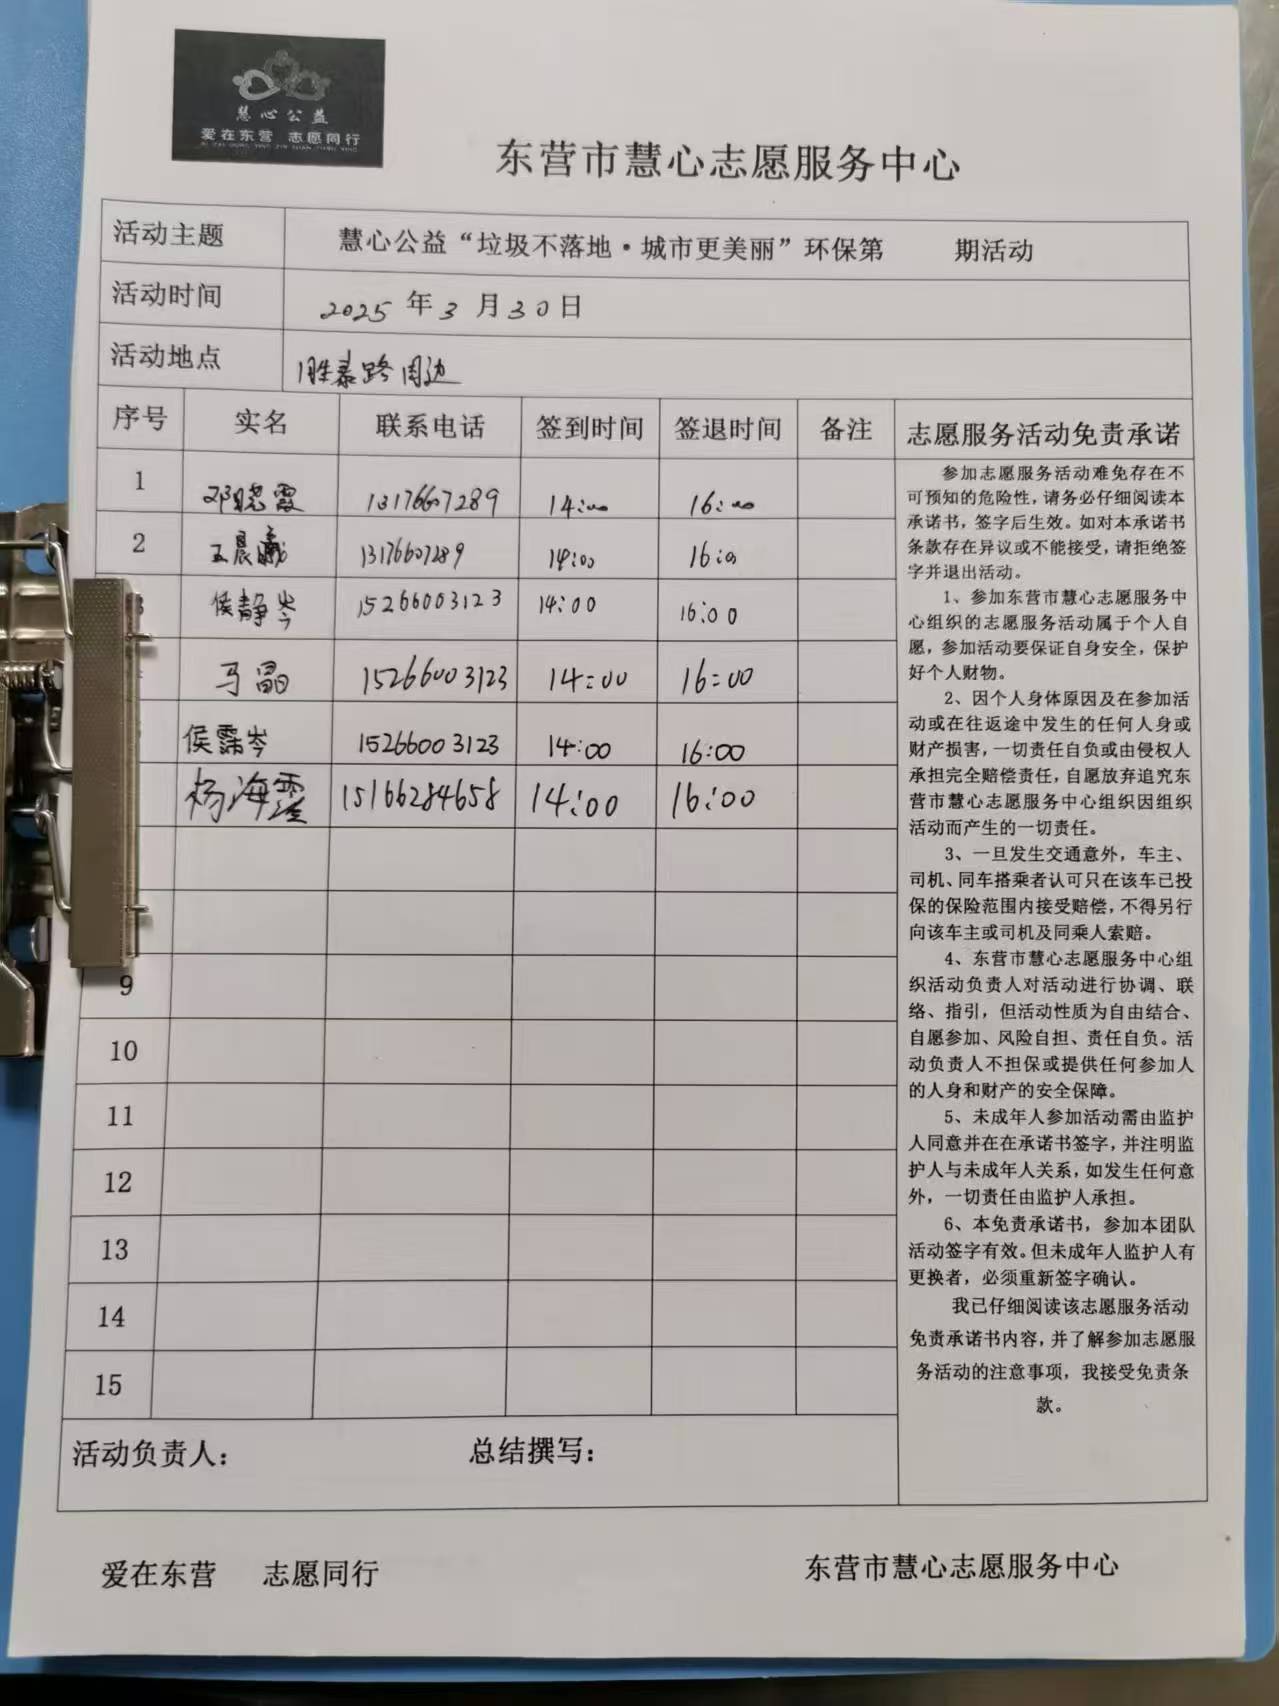 慧心公益
爱在东营 志愿同行
东营市慧心志愿服务中心
活动主题 慧心公益“垃圾不落地·城市更美丽”环保第 期活动
活动时间 2025年3月30日
活动地点 胜泰路周边
序号 实名 联系电话 签到时间 签退时间 备注 志愿服务活动免责承诺
1 邓晓霞 13176607289 14:00 16:00
2 王晨曦 13176607289 14:00 16:00
侯静岑 15266003123 14:00 16:00
马晶 15266003123 14:00 16:00
侯霈岑 15266003123 14:00 16:00
杨海霞 15166284658 14:00 16:00
9
10
11
12
13
14
15
参加志愿服务活动难免存在不
可预知的危险性，请务必仔细阅读本
承诺书，签字后生效。如对本承诺书
条款存在异议或不能接受，请拒绝签
字并退出活动。
1、参加东营市慧心志愿服务中
心组织的志愿服务活动属于个人自
愿，参加活动要保证自身安全，保护
好个人财物。
2、因个人身体原因及在参加活
动或在往返途中发生的任何人身或
财产损害，一切责任自负或由侵权人
承担完全赔偿责任，自愿放弃追究东
营市慧心志愿服务中心组织因组织
活动而产生的一切责任。
3、一旦发生交通意外，车主、
司机、同车搭乘者认可只在该车已投
保的保险范围内接受赔偿，不得另行
向该车主或司机及同乘人索赔。
4、东营市慧心志愿服务中心组
织活动负责人对活动进行协调、联
络、指引，但活动性质为自由结合、
自愿参加、风险自担、责任自负。活
动负责人不担保或提供任何参加人
的人身和财产的安全保障。
5、未成年人参加活动需由监护
人同意并在在承诺书签字，并注明监
护人与未成年人关系，如发生任何意
外，一切责任由监护人承担。
6、本免责承诺书，参加本团队
活动签字有效。但未成年人监护人有
更换者，必须重新签字确认。
我已仔细阅读该志愿服务活动
免责承诺书内容，并了解参加志愿服
务活动的注意事项，我接受免责条
款。
活动负责人： 总结撰写：
爱在东营 志愿同行 东营市慧心志愿服务中心